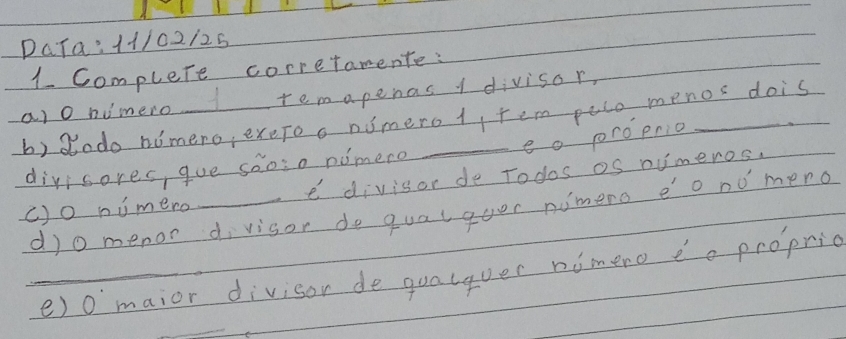 Data: 11/02/25
1- Complete corretamente:
a) O número 1 tem apenas 1 divisor,
b) Todo número, exeto o número 1, tem pelo menos dois
divisores, que são: o número ____ e o próprio ____
c) O número ____ é divisor de Todos os números.
d) O menor divisor de qualquer número é o número
____
e) O maior divisor de qualquer número é o próprio